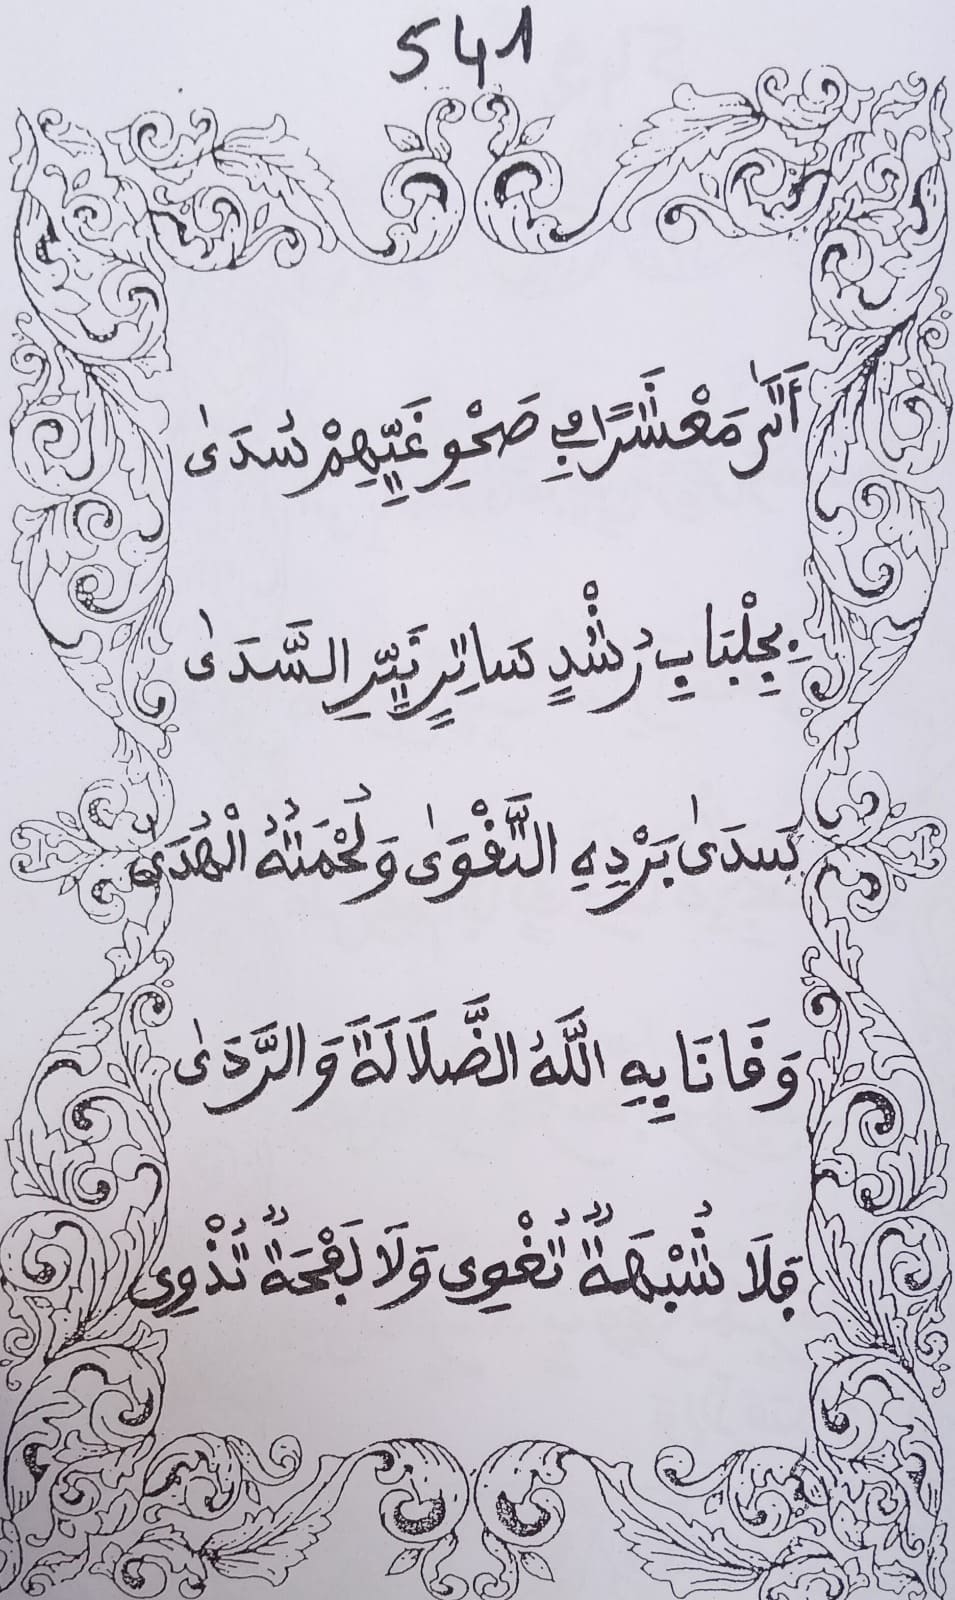 541
أَتَىٰ مَعْشَرًا فِي صَحْوِ غَيِّهِمْ سُدَىٰ
بِجِلْبَابِ رُشْدٍ سَاتِرٍ نَيِّرِ السَّدَىٰ
سَدَىٰ بَرْدِهِ التَّقْوَىٰ وَلُحْمَتُهُ الْهُدَىٰ
وَقَانَا بِهِ اللَّهُ الضَّلَالَةَ وَالرَّدَىٰ
فَلَا شُبْهَةٌ تُغْوِي وَلَا لَفْحَةٌ تُذْوِي